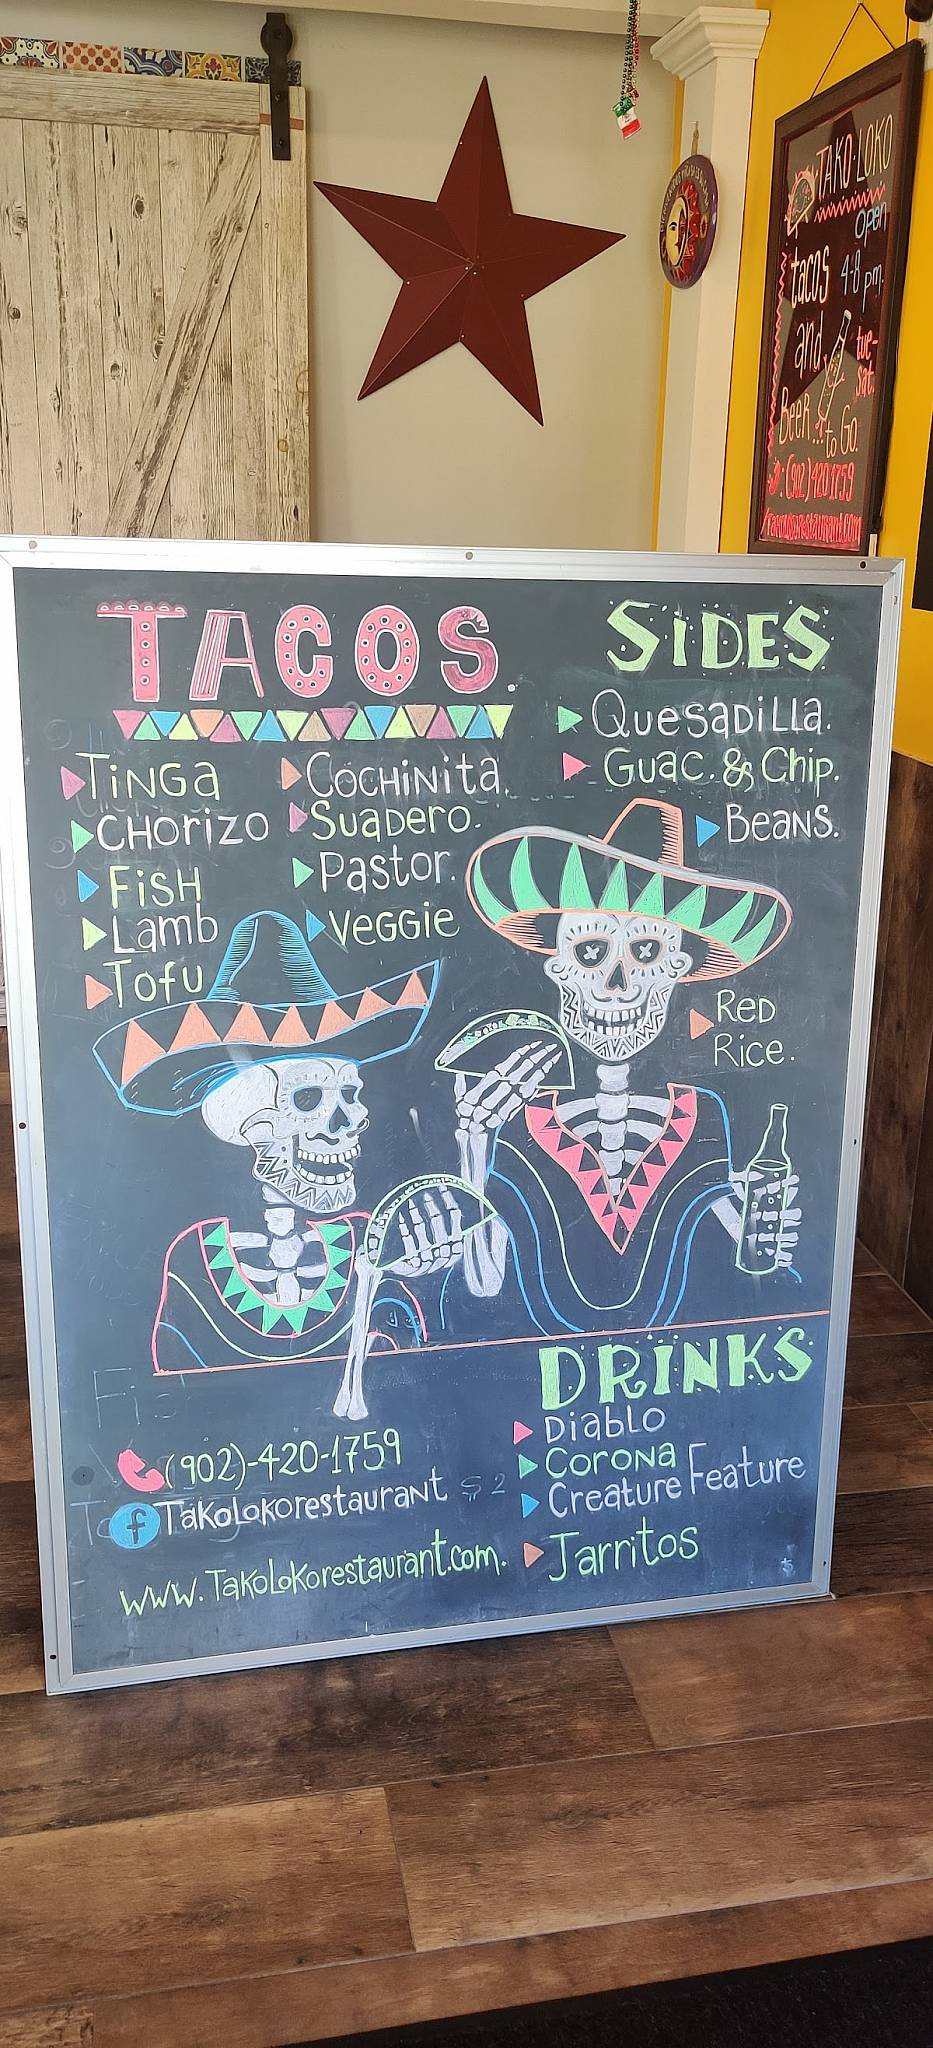 TAKO-LOKO
Open
tacos 4-8 pm.
and tue-
sat.
Beer... to Go.
(902) 420 1759
TACOS.
Tinga
Chorizo
Fish
Lamb
Tofu
Cochinita.
Suadero.
Pastor.
Veggie
SIDES
Quesadilla.
Guac. & Chip.
Beans.
Red
Rice.
DRINKS
Diablo
Corona
Creature Feature
Jarritos
(902)-420-1759
f Takolokorestaurant
www.Takolokorestaurant.com.